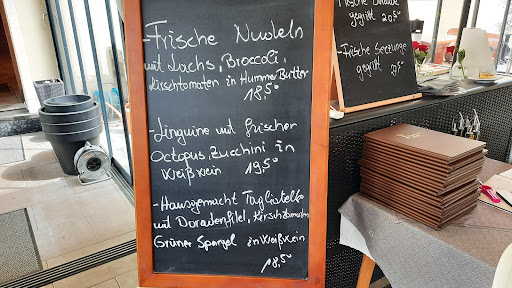 - Frische Nudeln
mit Lachs, Broccoli,
Kirschtomaten in Hummer Butter
18,50
- Linguine mit frischer
Octopus, Zucchini in
Weißwein 19,50
- Hausgemacht Tagliatelle
mit Doradenfilet, Kirschtomaten
Grüner Spargel in Weißwein
18,50
Frische Dorade
gegrillt 20,50
- Frische Seezunge
gegrillt